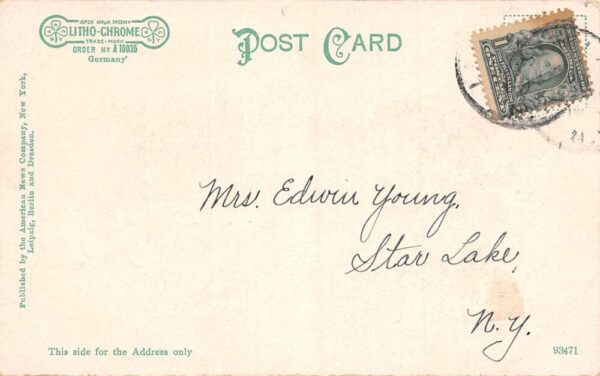 LEIPZIG BERLIN DRESDEN
LITHO-CHROME
TRADE-MARK
ORDER No A 10035
Germany
POST CARD
Published by the American News Company, New York,
Leipzig, Berlin and Dresden.
Mrs. Edwin Young,
Star Lake,
N.Y.
This side for the Address only
93471